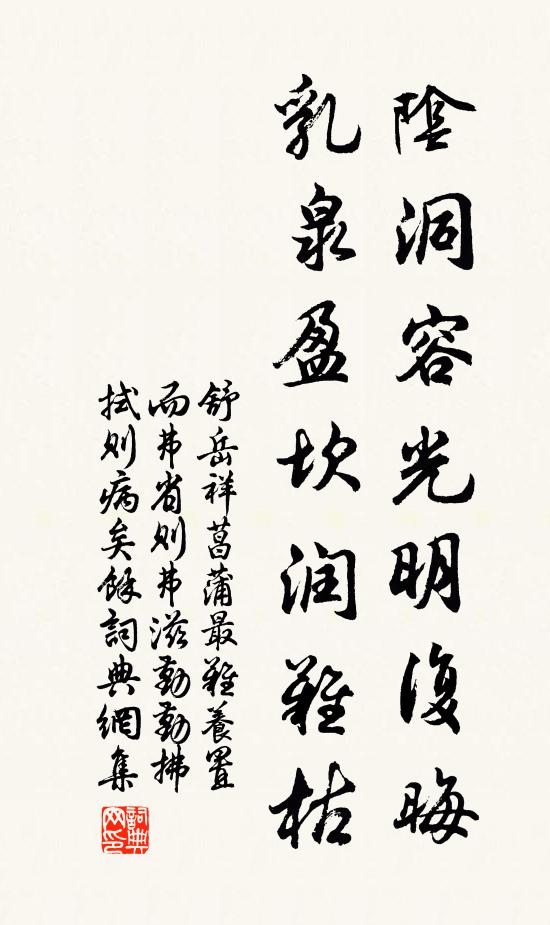 陰洞容光明復晦
乳泉盈坎潤難枯
舒岳祥菖蒲最難養置
而弗省則弗滋勤勤拂
拭則病矣餘詞典網集
詞典
网印